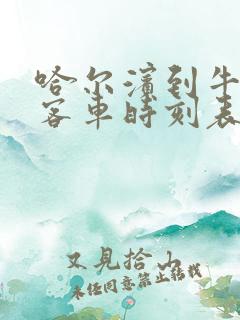 哈尔滨到牛
客车时刻表
又见拾山
未经同意禁止转载